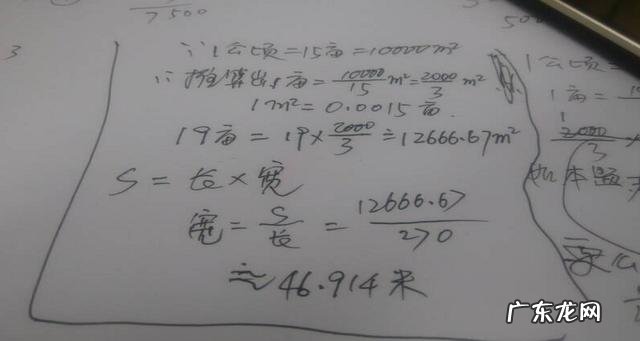 7500
500
3
∵1公顷=15亩=10000m²
∵推算出1亩=10000/15m²=2000/3m²
1m²=0.0015亩.
19亩=19×2000/3≐12666.67m²
S=长×宽
宽=S/长=12666.67/270
≈46.914米
1公顷=
1亩=
2000/3
本题
广东龙网